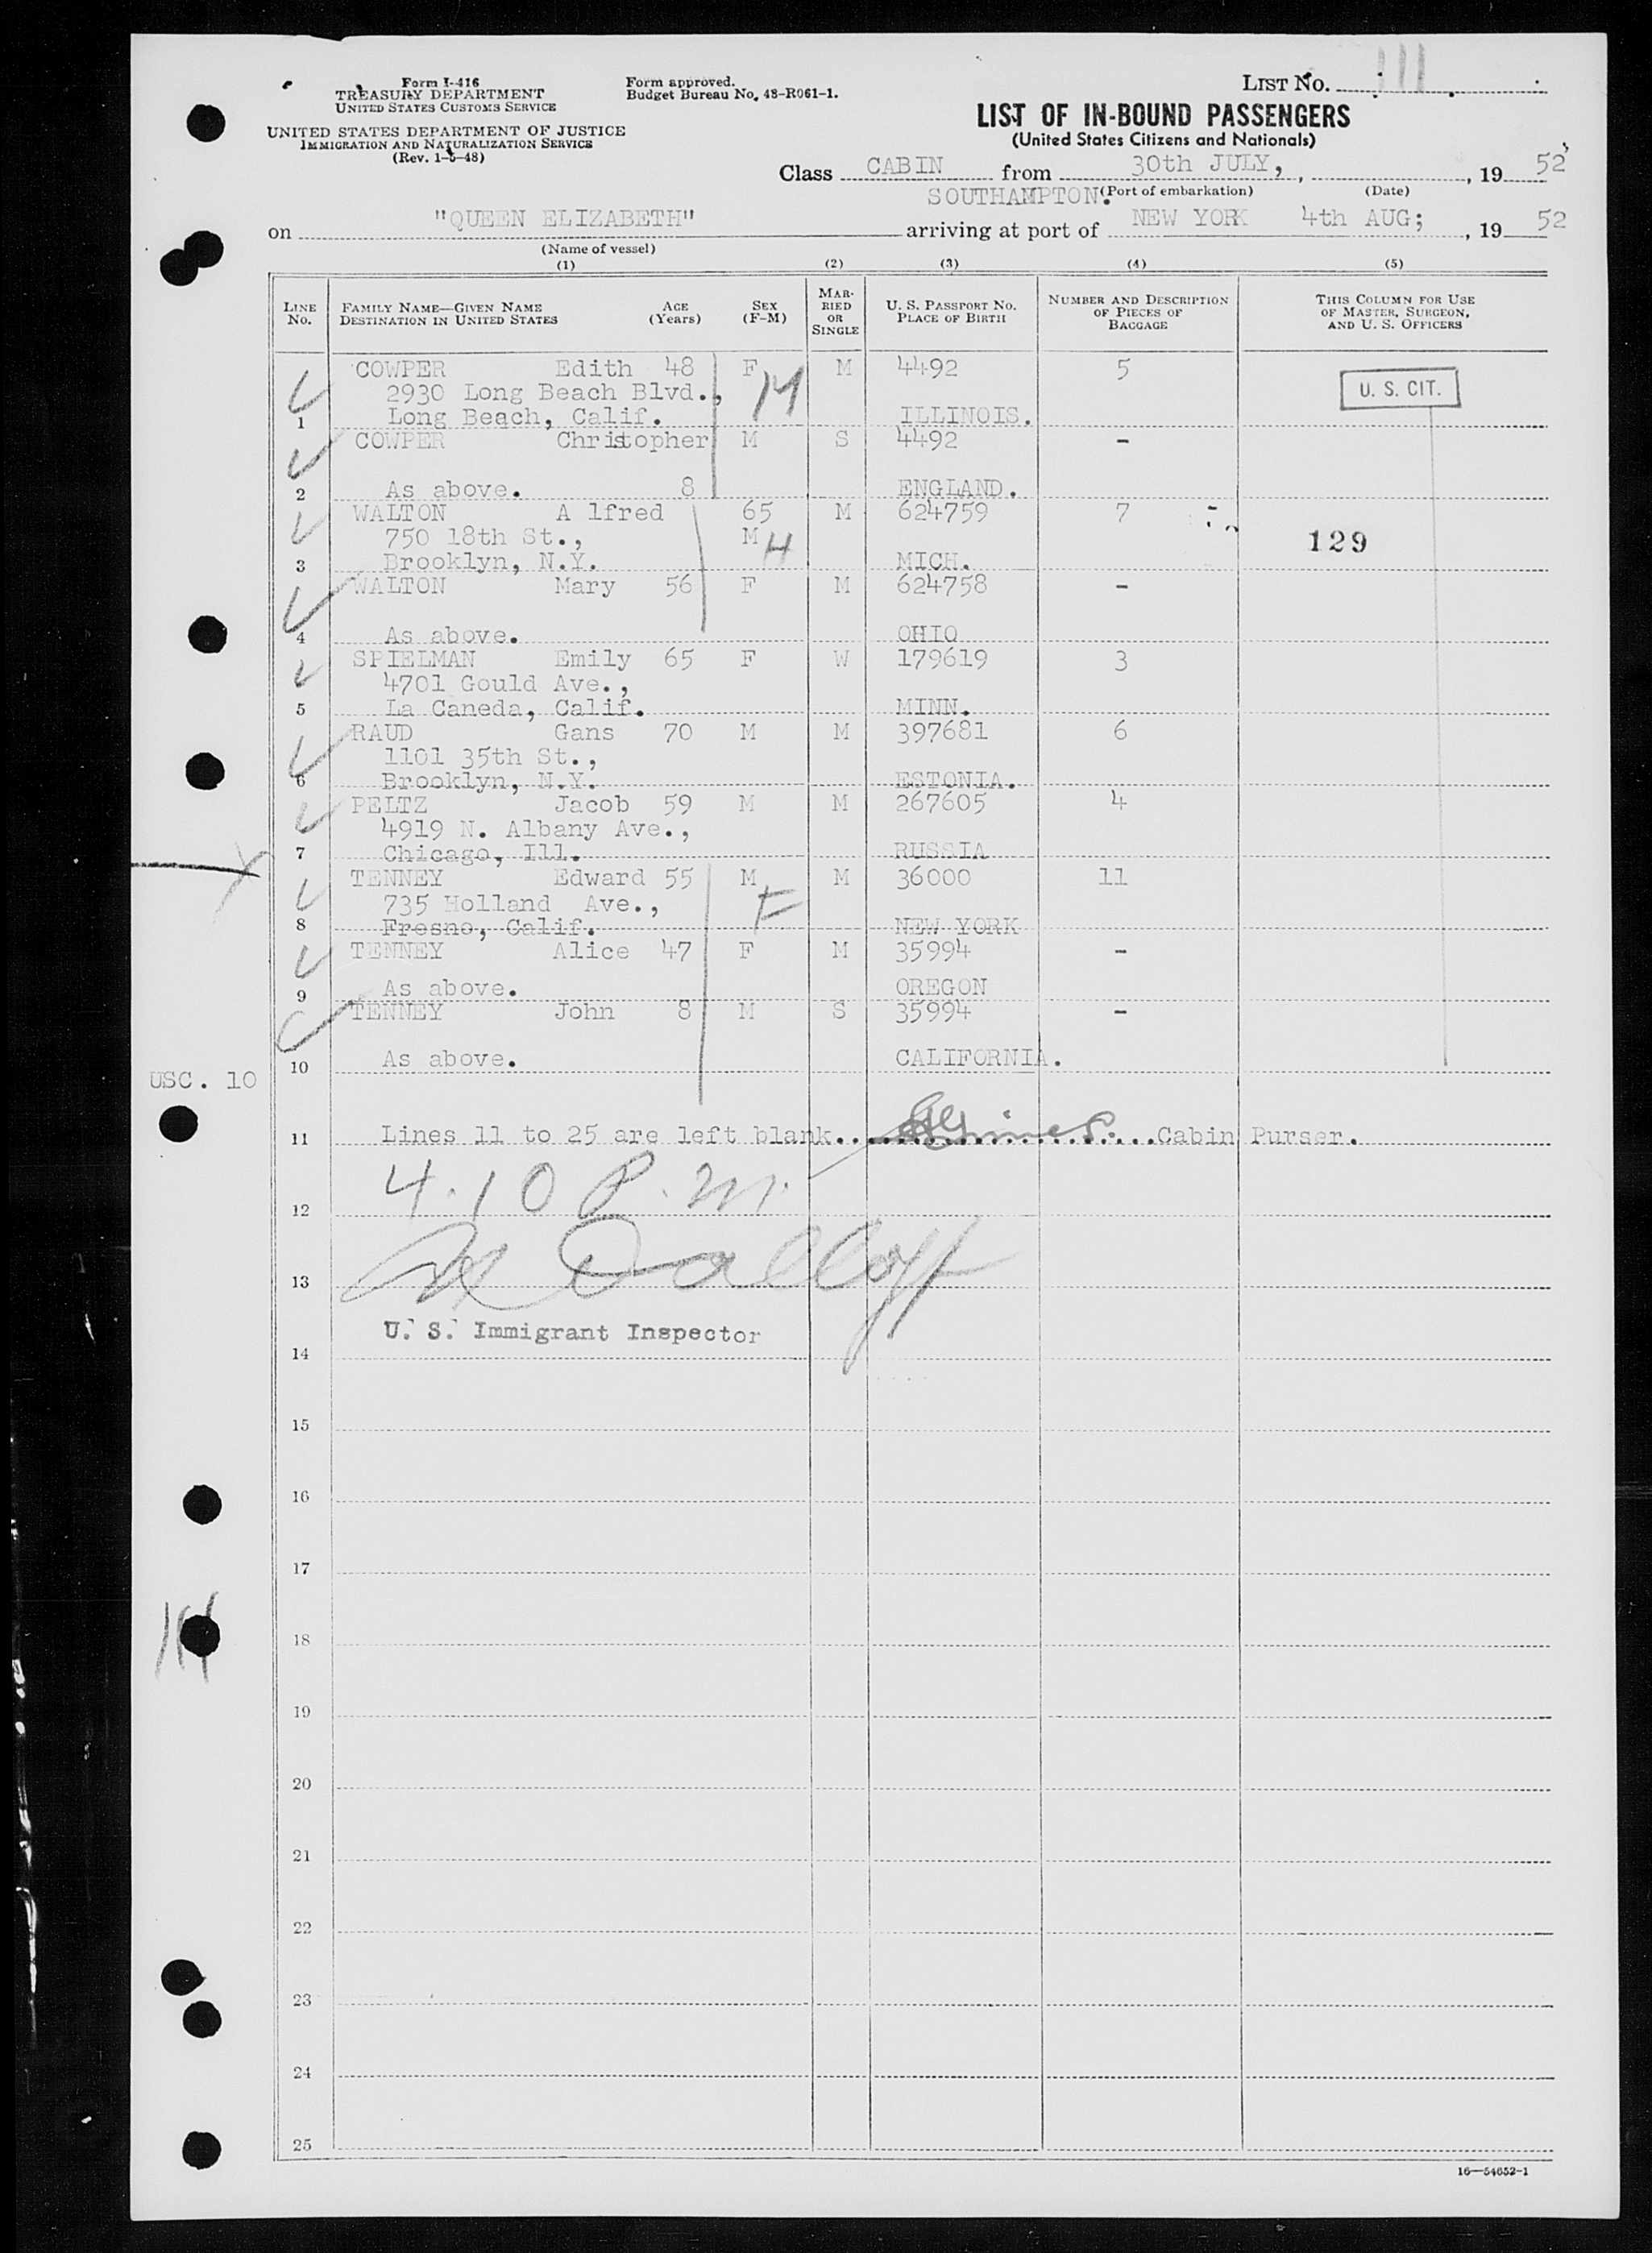 Form I-416
TREASURY DEPARTMENT
UNITED STATES CUSTOMS SERVICE
UNITED STATES DEPARTMENT OF JUSTICE
IMMIGRATION AND NATURALIZATION SERVICE
(Rev. 1-5-48)
Form approved.
Budget Bureau No. 48-R061-1.
LIST No. 111
LIST OF IN-BOUND PASSENGERS
(United States Citizens and Nationals)
Class CABIN from 30th JULY, , 19 52
SOUTHAMPTON. (Port of embarkation) (Date)
on "QUEEN ELIZABETH" arriving at port of NEW YORK 4th AUG; , 19 52
(Name of vessel)
(1) (2) (3) (4) (5)
LINE No. FAMILY NAME—GIVEN NAME DESTINATION IN UNITED STATES AGE (Years) SEX (F-M) MARRIED OR SINGLE U. S. PASSPORT No. PLACE OF BIRTH NUMBER AND DESCRIPTION OF PIECES OF BAGGAGE THIS COLUMN FOR USE OF MASTER, SURGEON, AND U. S. OFFICERS
COWPER Edith 48 F M 4492 5 U. S. CIT.
2930 Long Beach Blvd., 14
1 Long Beach, Calif. ILLINOIS.
COWPER Christopher M S 4492 -
2 As above. 8 ENGLAND.
WALTON A lfred 65 M 624759 7
750 18th St., M H 129
3 Brooklyn, N.Y. MICH.
WALTON Mary 56 F M 624758 -
4 As above. OHIO
SPIELMAN Emily 65 F W 179619 3
4701 Gould Ave.,
5 La Caneda, Calif. MINN.
RAUD Gans 70 M M 397681 6
1101 35th St.,
6 Brooklyn, N.Y. ESTONIA.
PELTZ Jacob 59 M M 267605 4
4919 N. Albany Ave.,
7 Chicago, Ill. RUSSIA
TENNEY Edward 55 M M 36000 11
735 Holland Ave.,
8 Fresno, Calif. NEW YORK
TENNEY Alice 47 F M 35994 -
9 As above. OREGON
TENNEY John 8 M S 35994 -
10 As above. CALIFORNIA.
USC. 10
11 Lines 11 to 25 are left blank. Cabin Purser.
4.10 P.m.
12
13
U. S. Immigrant Inspector
14
15
16
17
111
18
19
20
21
22
23
24
25
16—54652-1